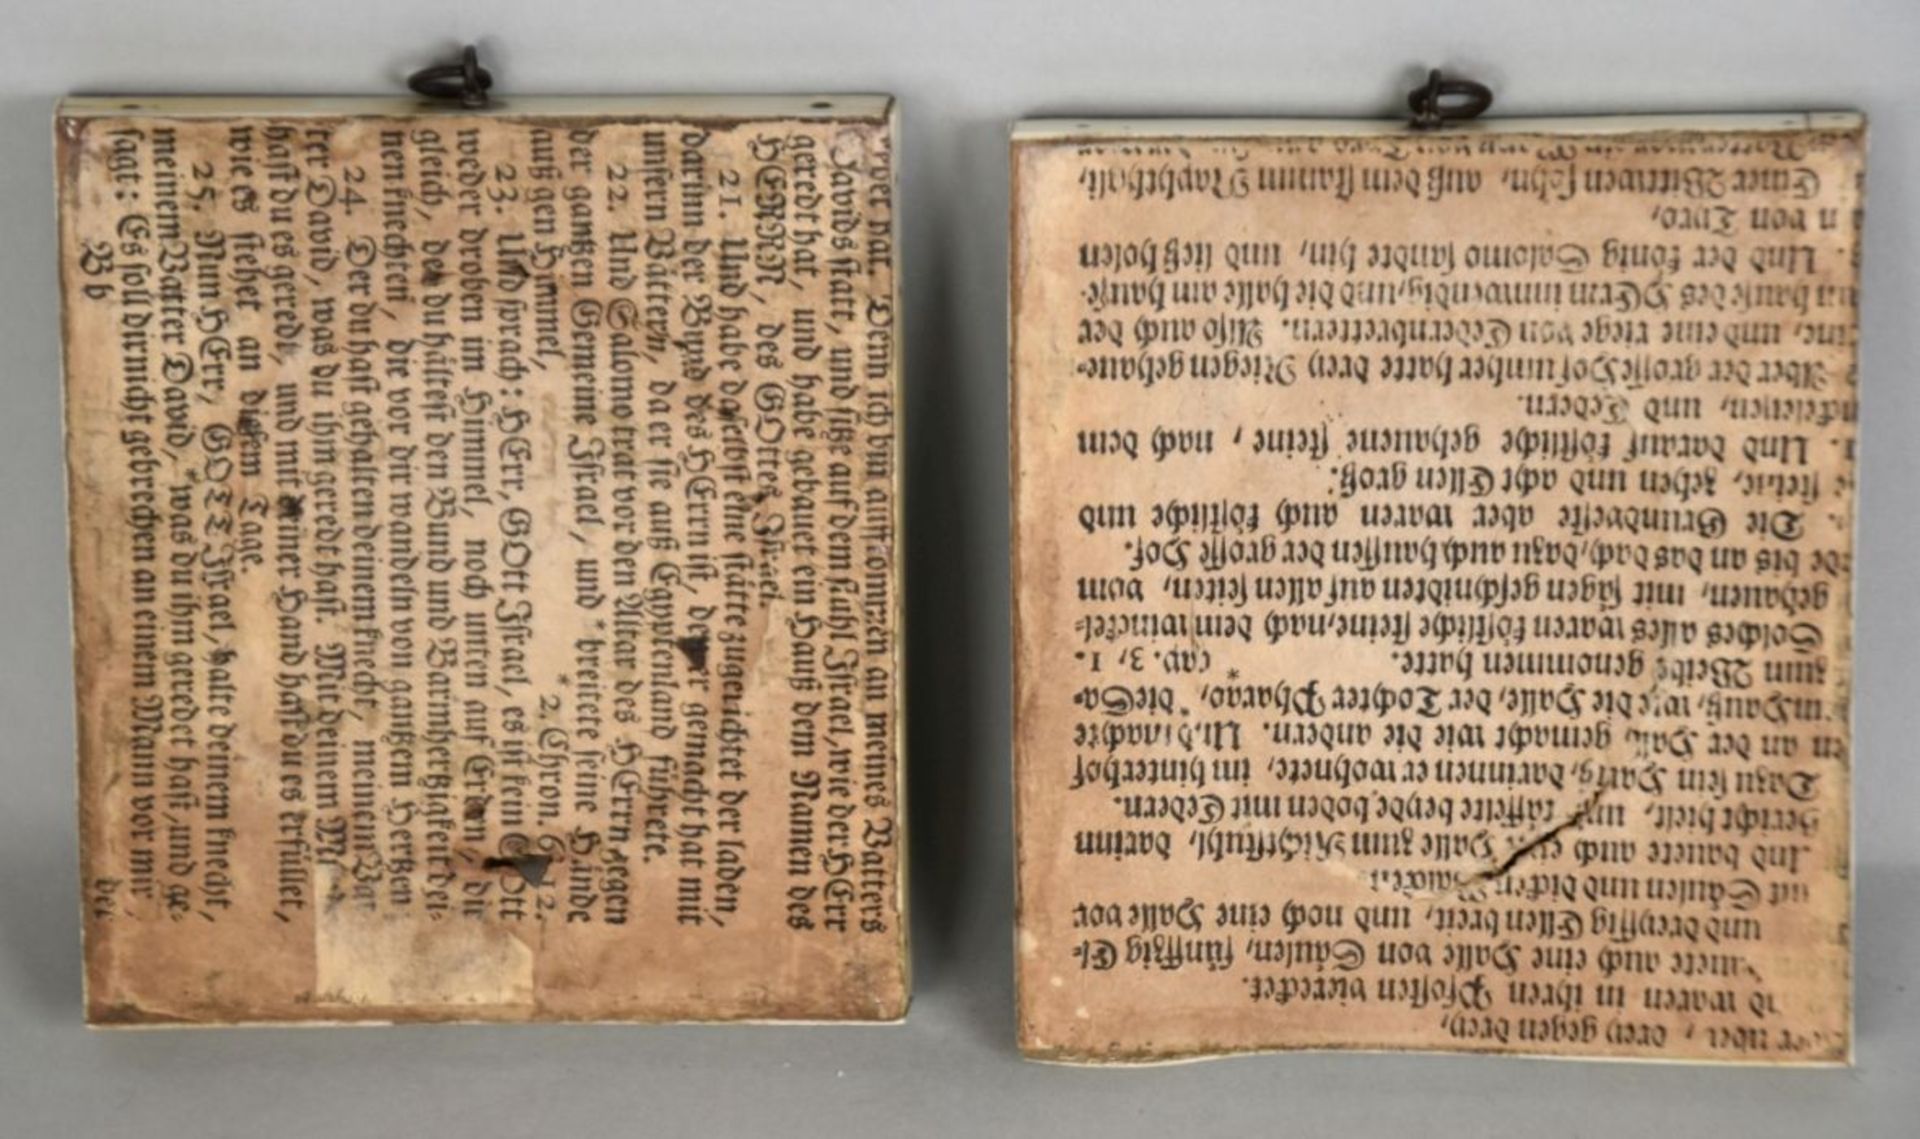 Denn ich bin auffkommen an meines Vatters
Davids statt, und sitze auf dem stuhl Israel, wie der HErr
geredt hat, und habe gebauet ein Hauß dem Namen des
HERRN, des GOttes Israel.
21. Und habe daselbst eine stätte zugerichtet der laden,
darinn der Bund des HErrn ist, den er gemacht hat mit
unsern Vättern, da er sie auß Egyptenland führete.
22. Und Salomo trat vor den Altar des HErrn, gegen
der gantzen Gemeine Israel, und * breitete seine Hände
auß gen Himmel, * 2. Chron. 6, 12.
23. Und sprach: HErr, GOtt Israel, es ist kein GOtt
weder droben im Himmel, noch unten auf Erden, dir
gleich, der du hältest den Bund und Barmhertzigkeit dei-
nen knechten, die vor dir wandeln von gantzem Hertzen.
24. Der du hast gehalten deinem knecht, meinem Vat-
ter David, was du ihm geredt hast. Mit deinem
hast du es geredt, und mit deiner Hand hast du es erfüllet,
wie es stehet an diesem Tage.
25. Nun HErr, GOTT Israel, halte deinem knecht,
meinem Vatter David, * was du ihm geredet hast, und ge-
sagt: Es soll dir nicht gebrechen an einem Mann vor mir,
B b
der
über, drey gegen drey,
waren in ihren Pfosten viereckt.
auch eine Halle von Säulen, fünffzig El-
und dreyssig Ellen breit, und noch eine Halle vor
mit Säulen und dicken
Und bauete auch eine Halle zum Richtstuhl, darinn
Gericht hielt, und täffelte beyde boden mit Cedern.
Dazu sein Hauß, darinnen er wohnete, im hinterhof
an der Hall, gemacht wie die andern. Und machte
Hauß, wie die Halle, der Tochter Pharao, * die Sa-
zum Weibe genommen hatte. * cap. 3, 1.
Solches alles waren köstliche steine, nach dem winckel-
gehauen, mit sägen geschnidten auf allen seiten, vom
bis an das dach, dazu auch haussen der grosse Hof.
Die Grundveste aber waren auch köstliche und
steine, zehen und acht Ellen groß.
Und darauf köstliche gehauene steine, nach dem
und Cedern.
Aber der grosse Hof umher hatte drey Riegen gehaue-
und eine riege von Cedernbrettern. Also auch der
hause des HErrn inwendig, und die halle am hause.
Und der könig Salomo sandte hin, und ließ holen
von Tyro,
Einer Wittwen sohn, auß dem stamm Naphthali,